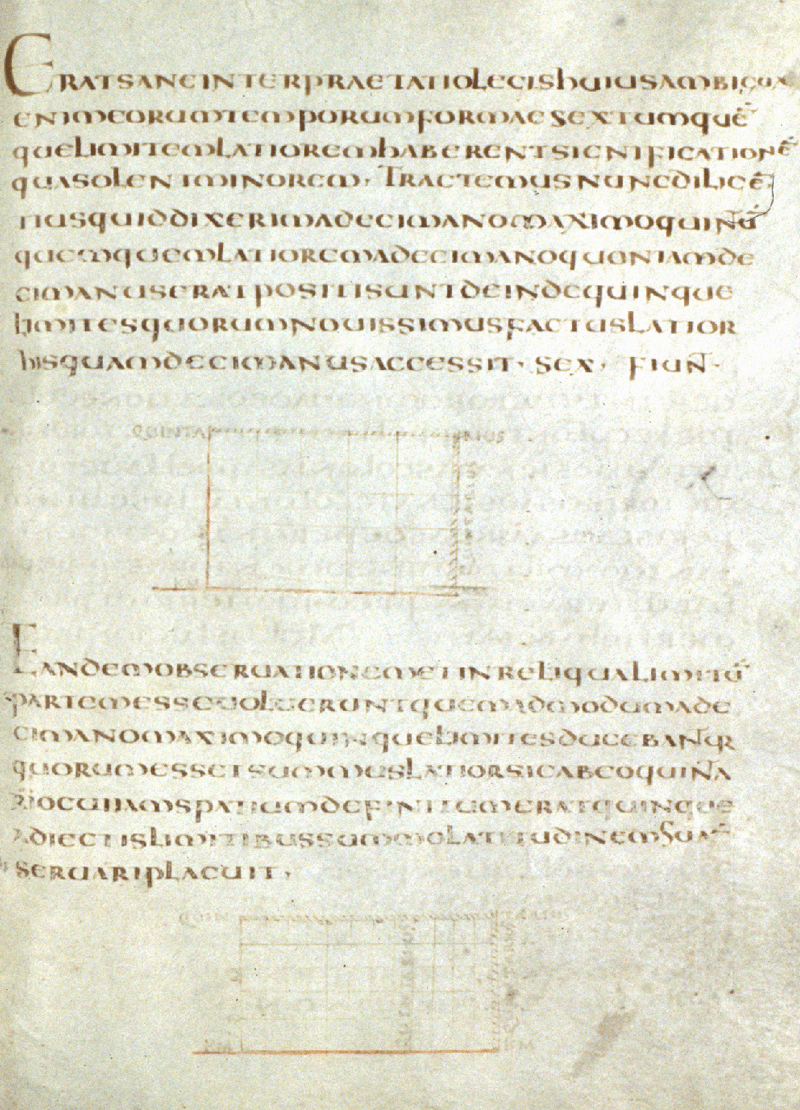 ERATSANEINTERPRAETATIOLEGISHUIUSAMBIGUA
ENIMEORUMTEMPORUMFORMAESEXTUMQUĒ
QUELIMITEMLATIOREMHABERENTSIGNIFICATIONĒ
QUASOLENTMINOREM· TRACTEMUSNUNCDILIGĒ
TIUSQUIDDIXERIMADECIMANOMAXIMOQUINTŪ
QUEMQUEMLATIOREMADECIMANOQUONIAMDE
CIMANUSERATPOSITISUNTDEINDEQUINQUE
LIMITESQUORUMNOUISSIMUSFACTUSLATIOR
HISQUAMDECIMANUSACCESSIT· SEX· FIUN̄·
EANDEMOBSERUATIONEMETINRELIQUALIMITŪ
PARTEMESSEUOLUERUNTQUEMADMODUMADE
CIMANOMAXIMOQUINQUELIMITESDUCEBANTUR
QUORUMESSETSUMMUSLATIORSICABEOQUINTA
SPATIUMDEFINITUMERATQUINQUE
ADIECTISLIMITIBUSSUMMOLATITUDINEMSUĀ
SERUARIPLACUIT·